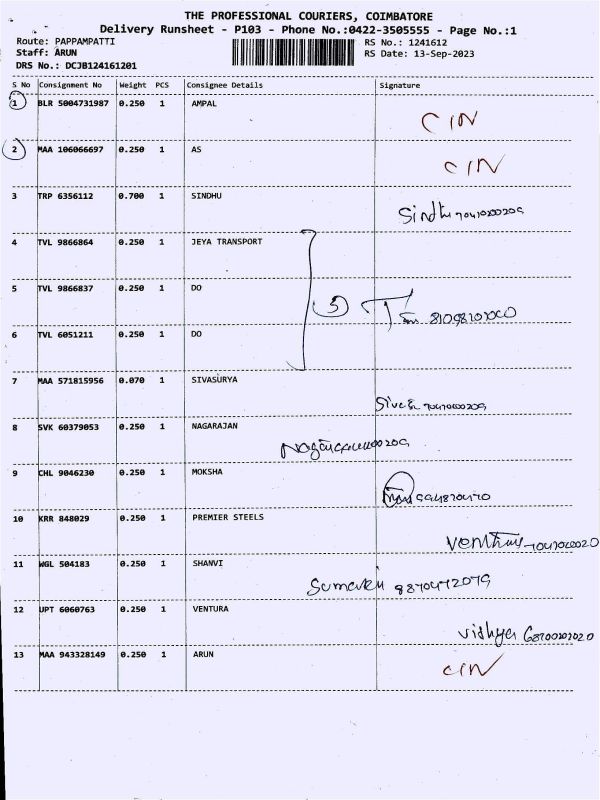 THE PROFESSIONAL COURIERS, COIMBATORE
Delivery Runsheet - P103 - Phone No.:0422-3505555 - Page No.:1
Route: PAPPAMPATTI RS No.: 1241612
Staff: ARUN RS Date: 13-Sep-2023
DRS No.: DCJB124161201
S No Consignment No Weight PCS Consignee Details Signature
1 BLR 5004731987 0.250 1 AMPAL
CIN
2 MAA 106066697 0.250 1 AS
CIN
3 TRP 6356112 0.700 1 SINDHU
Sindhu
4 TVL 9866864 0.250 1 JEYA TRANSPORT
5 TVL 9866837 0.250 1 DO
3
6 TVL 6051211 0.250 1 DO
7 MAA 571815956 0.070 1 SIVASURYA
8 SVK 60379053 0.250 1 NAGARAJAN
9 CHL 9046230 0.250 1 MOKSHA
10 KRR 848029 0.250 1 PREMIER STEELS
11 WGL 504183 0.250 1 SHANVI
12 UPT 6060763 0.250 1 VENTURA
Vidhya
13 MAA 943328149 0.250 1 ARUN
CIN